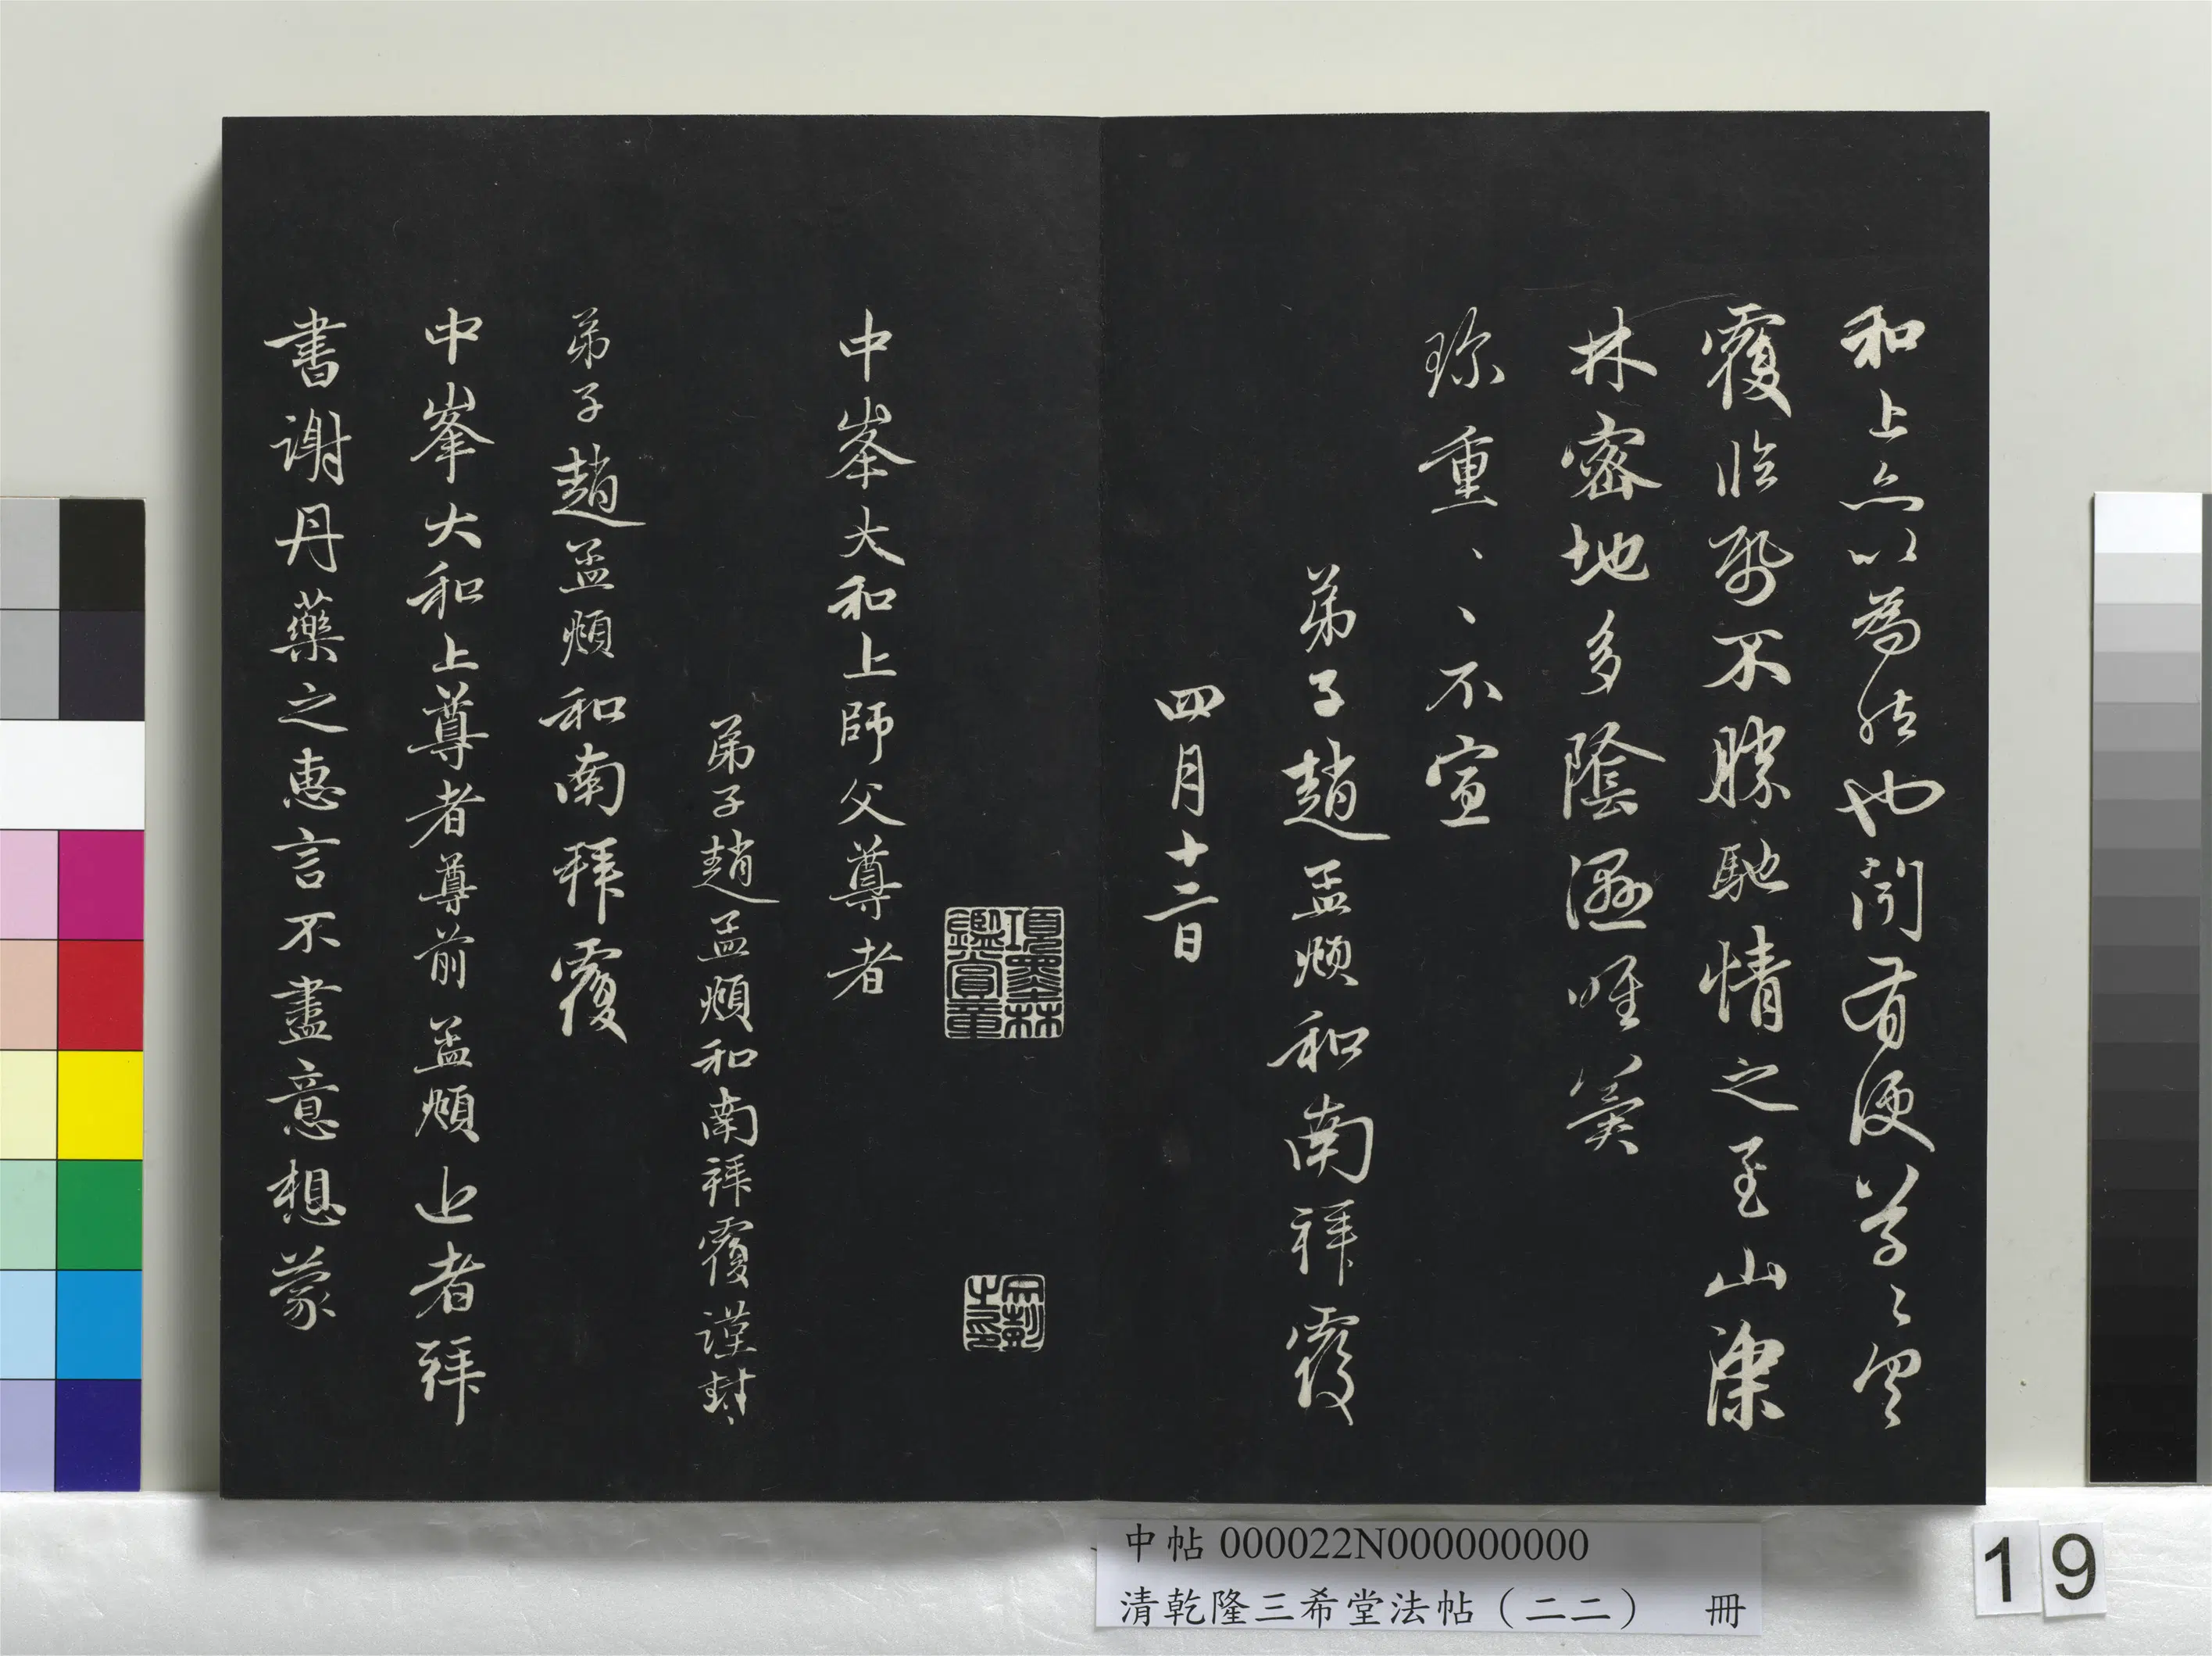 和上亦以為然也閒有便草々具
覆臨紙不勝馳情之至山深
林密地多陰濕唯冀
珎重、、不宣
弟子趙孟頫和南拜覆
四月十二日
項墨林鑑賞章
中峯大和上師父尊者
弟子趙孟頫和南拜覆謹封
弟子趙孟頫和南拜覆
中峯大和上尊者尊前孟頫近者拜
書謝丹藥之惠言不盡意想蒙
中帖 000022N000000000
清乾隆三希堂法帖（二二） 冊
19